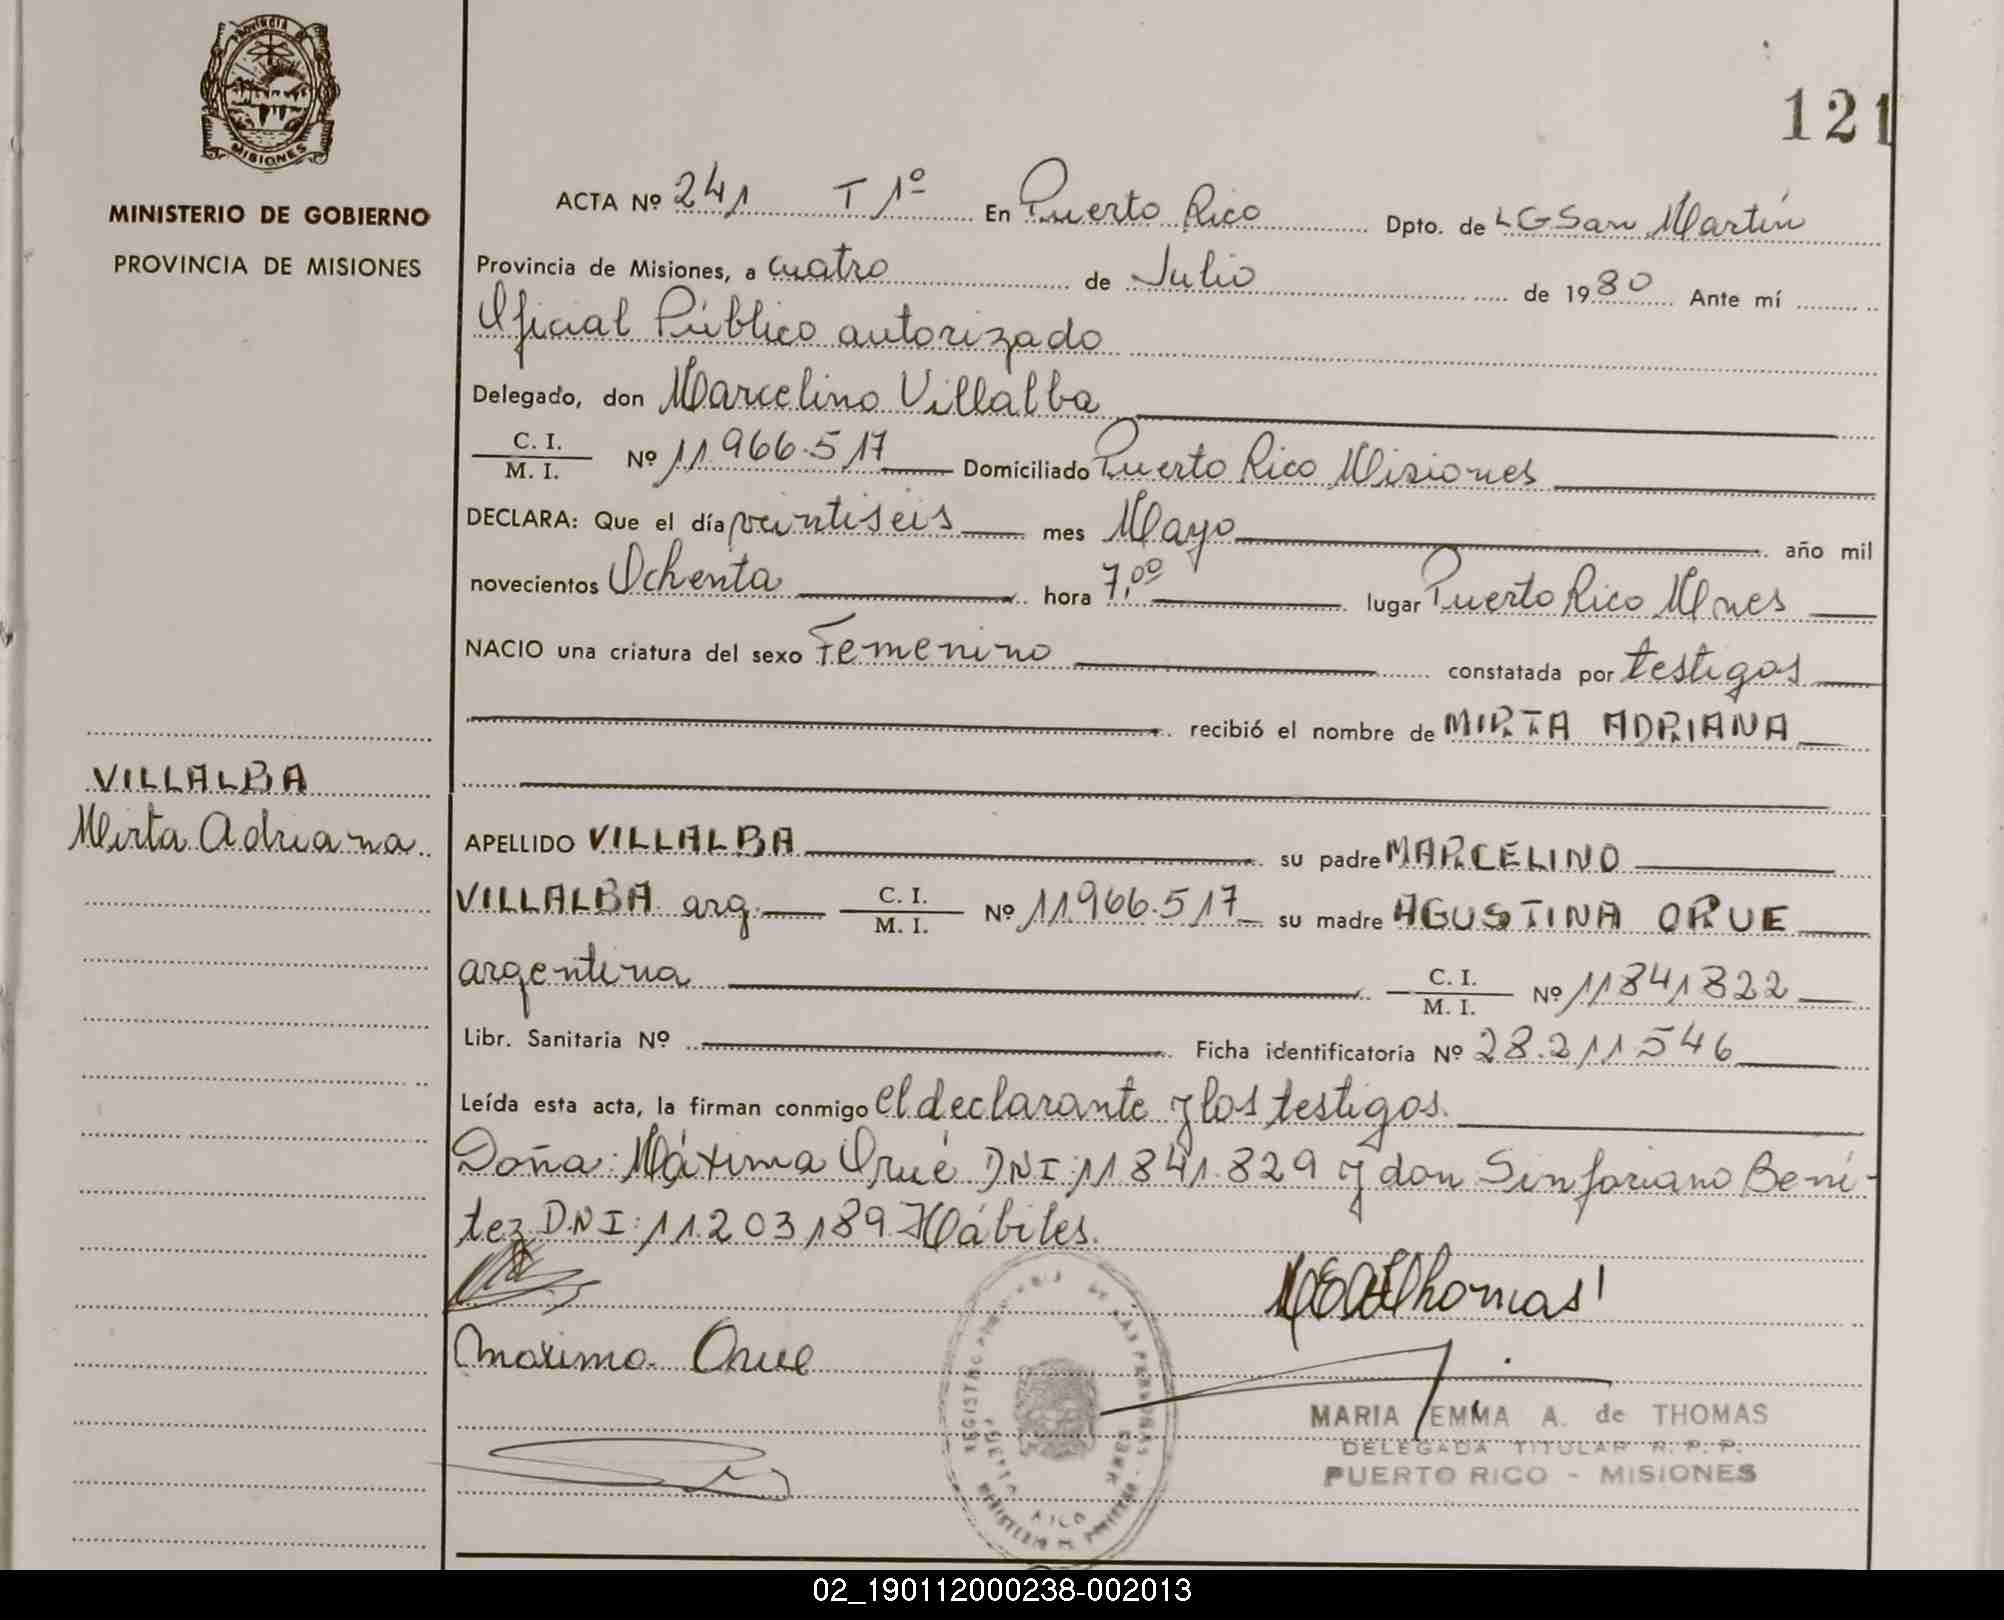 PROVINCIA
MISIONES
MINISTERIO DE GOBIERNO
PROVINCIA DE MISIONES
VILLALBA
Mirta Adriana
121
ACTA Nº 241 T 1º En Puerto Rico Dpto. de LGSan Martín
Provincia de Misiones, a cuatro de Julio de 1980 Ante mí
Oficial Público autorizado
Delegado, don Marcelino Villalba
C. I.
M. I. Nº 11.966.517 Domiciliado Puerto Rico Misiones
DECLARA: Que el día veintiseis mes Mayo año mil
novecientos Ochenta hora 7,00 lugar Puerto Rico Mnes
NACIO una criatura del sexo Femenino constatada por testigos
recibió el nombre de MIRTA ADRIANA
APELLIDO VILLALBA su padre MARCELINO
VILLALBA arg. C. I. M. I. Nº 11.966.517 su madre AGUSTINA ORUE
argentina C. I. M. I. Nº 11841822
Libr. Sanitaria Nº Ficha identificatoria Nº 28.211546
Leída esta acta, la firman conmigo el declarante y los testigos.
Doña: Máxima Orué DNI: 11841.829 y don Sinforiano Bení-
tez D.N.I: 11.203.189. Hábiles.
MEAdeThomas
maxima Orue
MARIA EMMA A. de THOMAS
DELEGADA TITULAR R. P. P.
PUERTO RICO - MISIONES
PUERTO RICO
02_190112000238-002013